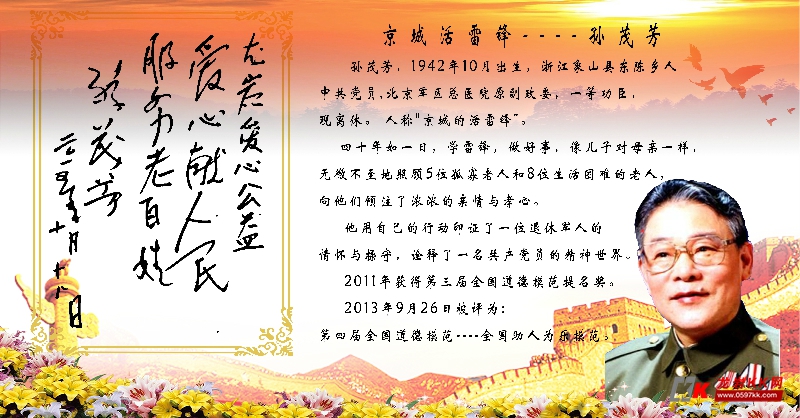 京城活雷锋----孙茂芳
孙茂芳，1942年10月出生，浙江象山县东陈乡人
中共党员，北京军区总医院原副政委，一等功臣，
现离休。人称"京城的活雷锋"。
四十年如一日，学雷锋，做好事，像儿子对母亲一样，
无微不至地照顾5位孤寡老人和8位生活困难的老人，
向他们倾注了浓浓的亲情与孝心。
他用自己的行动印证了一位退休军人的
情怀与操守，诠释了一名共产党员的精神世界。
2011年获得第三届全国道德模范提名奖。
2013年9月26日被评为：
第四届全国道德模范----全国助人为乐模范。
龙岩爱心公益
爱心献人民
服务为老百姓
孙茂芳
二〇一五年十月十八日
KK
龙岩KK网
www.0597kk.com